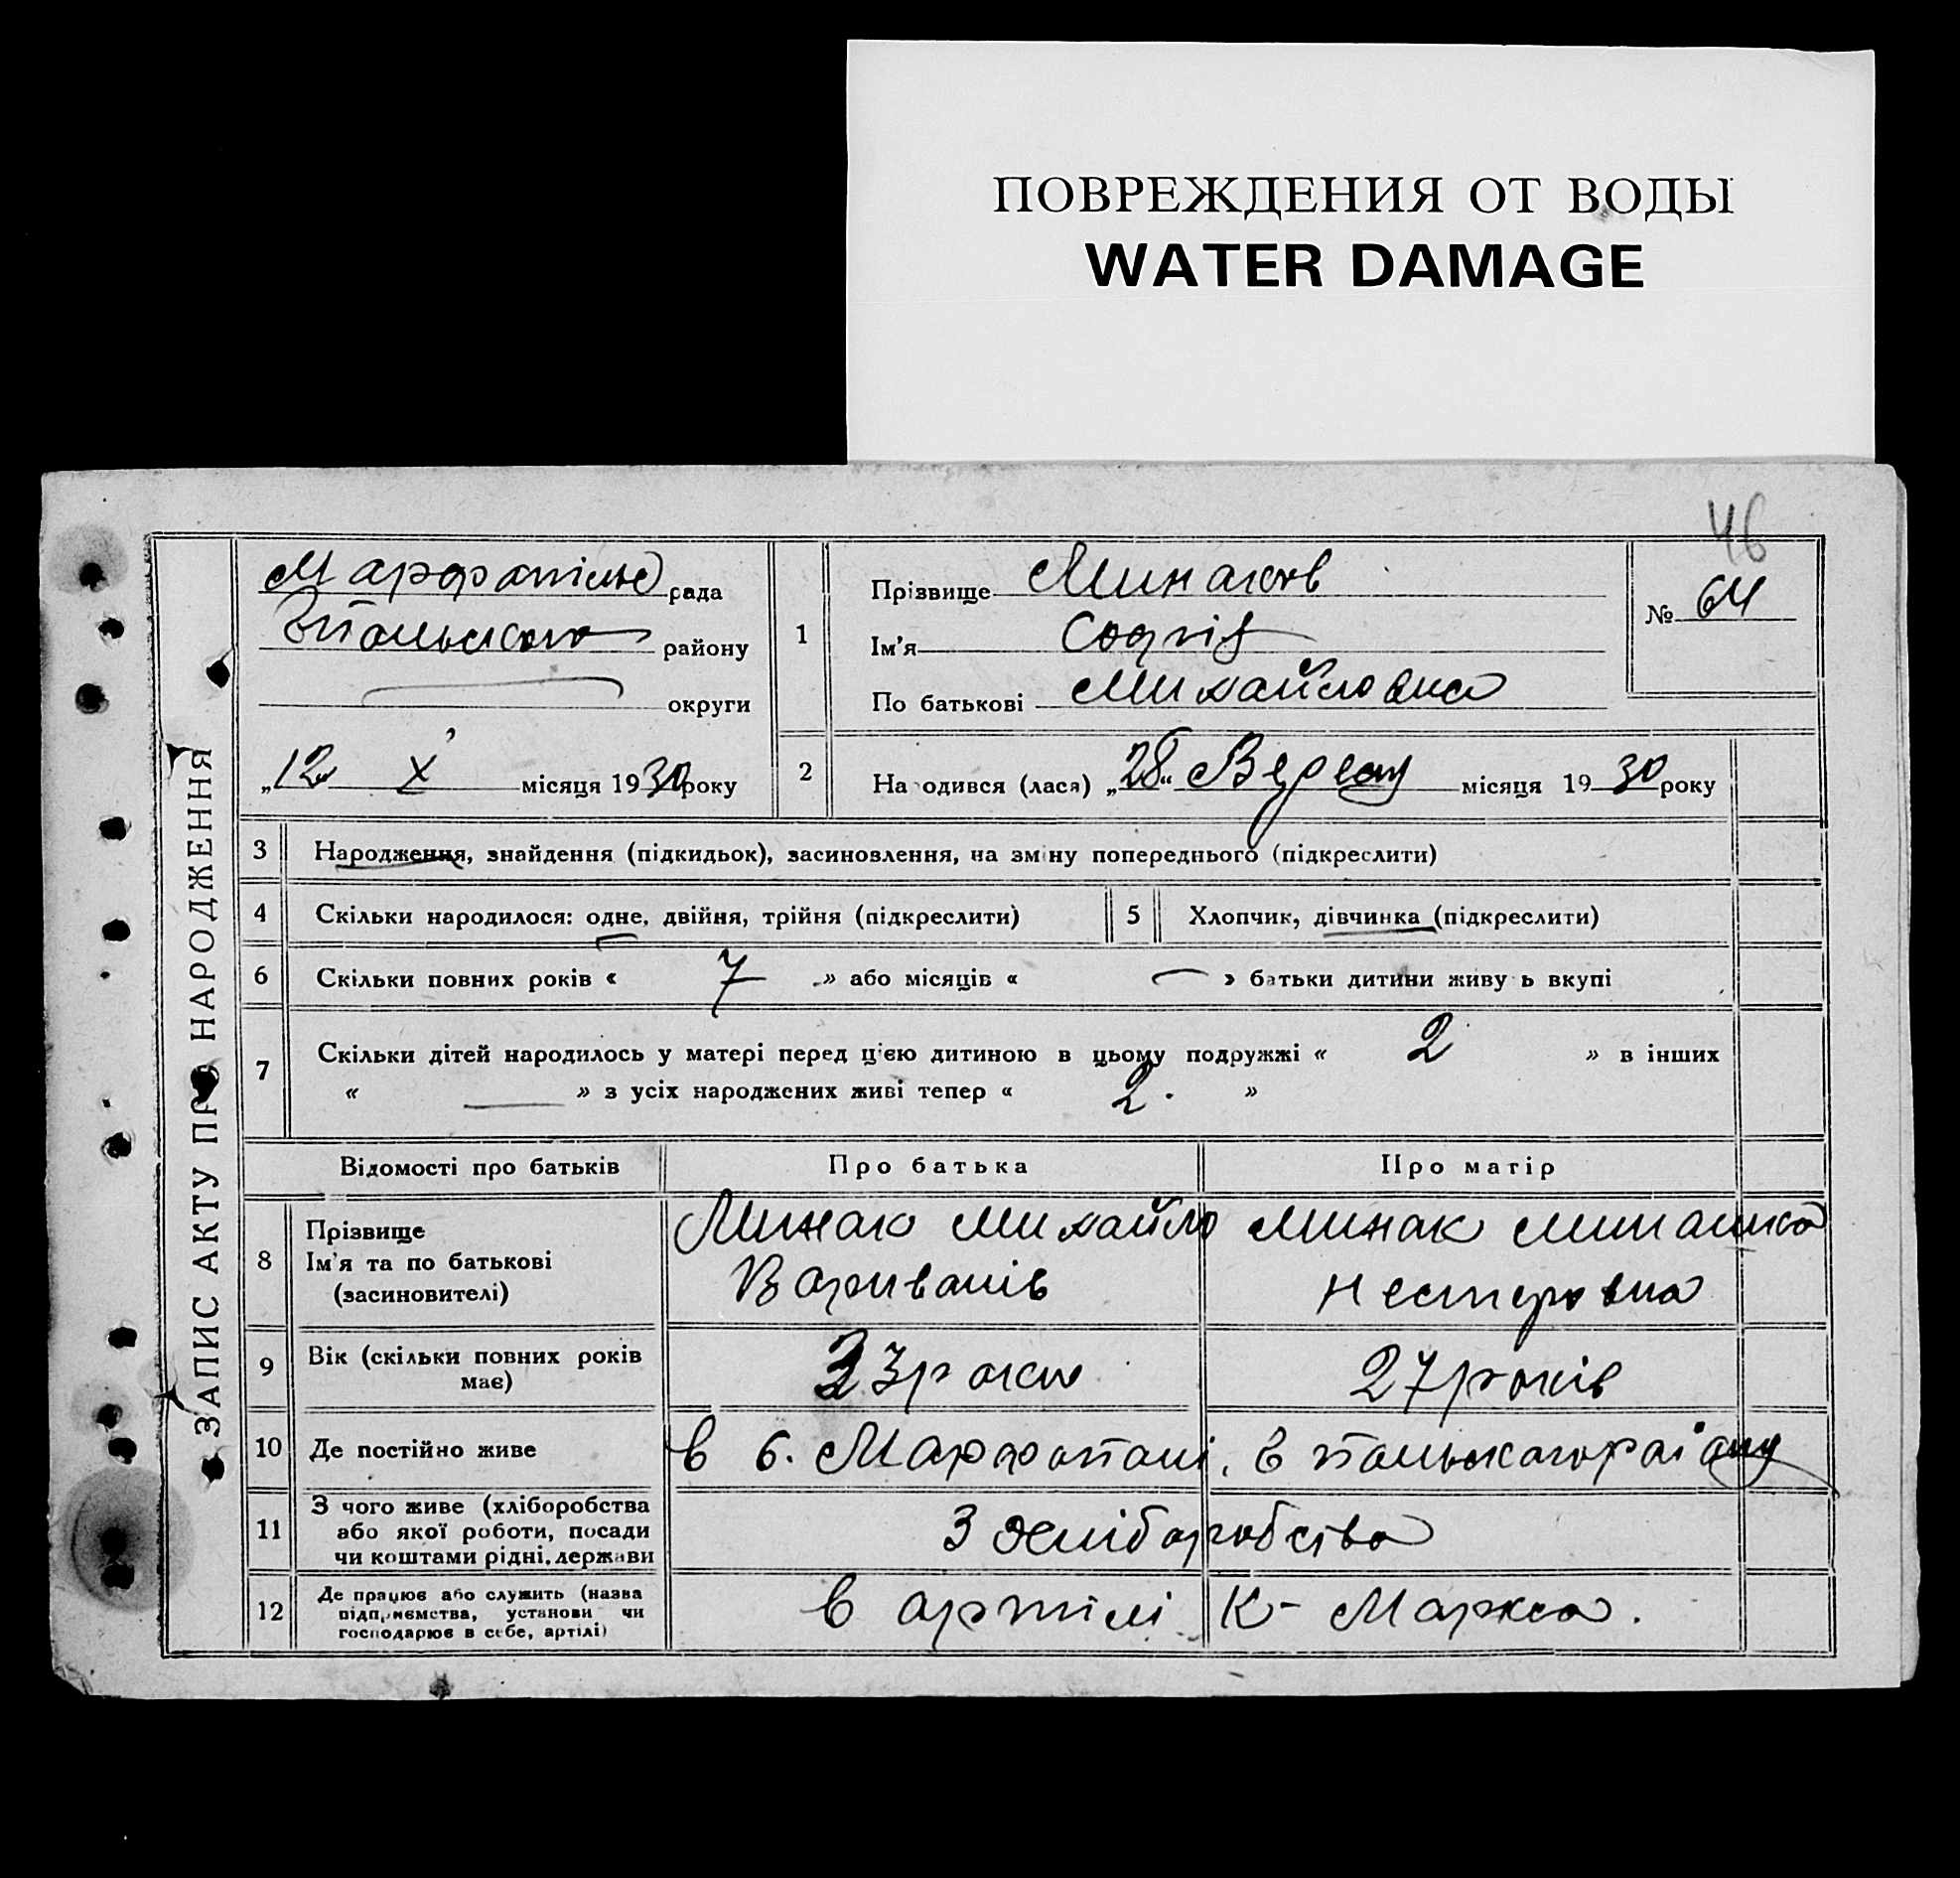 ПОВРЕЖДЕНИЯ ОТ ВОДЫ
WATER DAMAGE
46
ЗАПИС АКТУ ПРО НАРОДЖЕННЯ
рада
району
округи
„12 X місяця 1930 року
1
Прізвище
Ім'я Софія
По батькові Михайловна
№ 64
2
На одився (лася) „28" місяця 1930 року
3 Народження, знайдення (підкидьок), засиновлення, на зміну попереднього (підкреслити)
4 Скільки народилося: одне, двійня, трійня (підкреслити) 5 Хлопчик, дівчинка (підкреслити)
6 Скільки повних років « 7 » або місяців « — » батьки дитини живу ь вкупі
7 Скільки дітей народилось у матері перед цією дитиною в цьому подружжі « 2 » в інших
« — » з усіх народжених живі тепер « 2. »
Відомості про батьків Про батька Про матір
8 Прізвище
Ім'я та по батькові
(засиновителі)
Минак Михайло
Минак
Нестеровна
9 Вік (скільки повних років
має)
роки
27 років
10 Де постійно живе
11 З чого живе (хліборобства
або якої роботи, посади
чи коштами рідні, держави
З хліборобства
12 Де працює або служить (назва
підприємства, установи чи
господарює в себе, артілі)
в артілі К- Маркса.